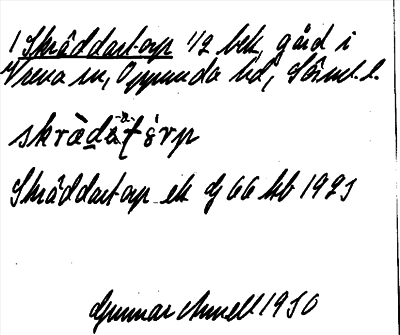 1 Skräddartorp 1/2 bek, gård i
Vrena sn, Oppunda hd, Söml. l.
skrà̤da̤ t̀ǫrp
Skräddartorp ek bl 66 kb 1921
Gunnar Arnell 1950